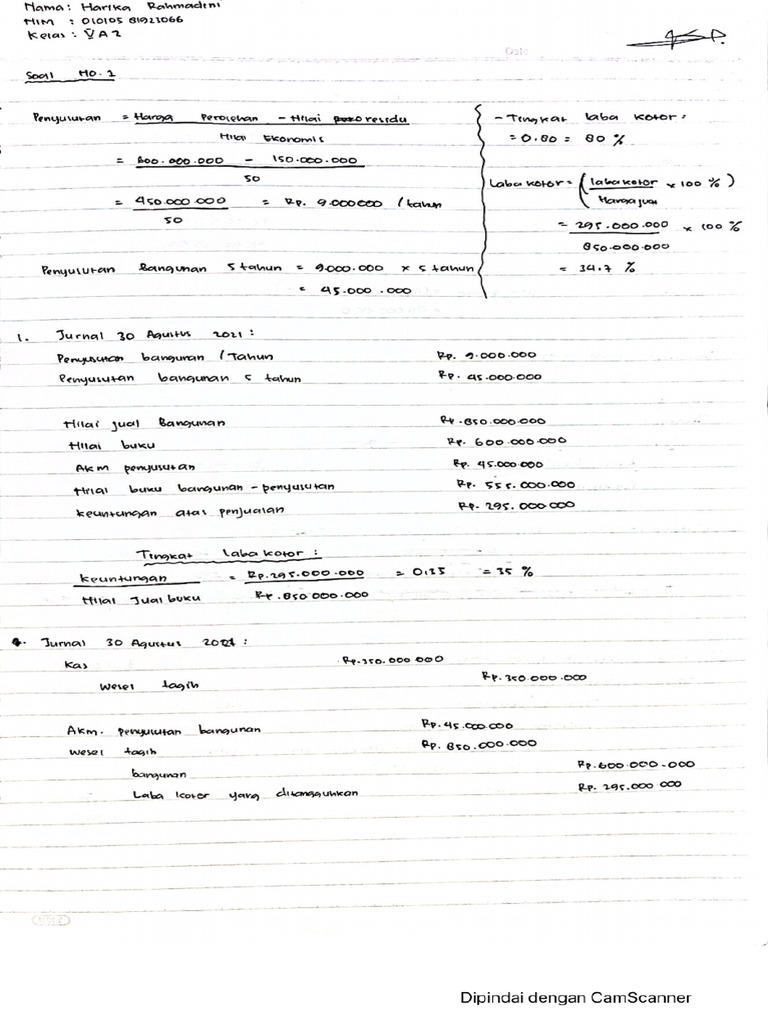 Nama : Harika Rahmadini
NIM : 010105 81923066
Kelas : V A 2
Date
Soal No. 1
Penyusutan = Harga Perolehan - Nilai residu
Nilai Ekonomis
= 600.000.000 - 150.000.000
50
= 450.000.000 = Rp. 9.000000 / tahun
50
Penyusutan Bangunan 5 tahun = 9000.000 x 5 tahun
= 45.000.000
- Tingkat laba kotor :
= 0.80 = 80 %
Laba kotor = ( laba kotor x 100 % )
Harga jual
= 295.000.000 x 100 %
850.000.000
= 34.7 %
1. Jurnal 30 Agustus 2021 :
Penyusutan bangunan / Tahun Rp. 9.000.000
Penyusutan bangunan 5 tahun Rp. 45.000.000
Nilai jual Bangunan Rp. 850.000.000
Nilai buku Rp. 600.000.000
Akm penyusutan Rp. 45.000.000
Nilai buku bangunan - penyusutan Rp. 555.000.000
Keuntungan atas penjualan Rp. 295.000.000
Tingkat laba kotor :
Keuntungan = Rp. 295.000.000 = 0.35 = 35 %
Nilai Jual buku Rp. 850.000.000
2. Jurnal 30 Agustus 2021 :
Kas Rp. 350.000.000
Wesel tagih Rp. 350.000.000
Akm. penyusutan bangunan Rp. 45.000.000
Wesel tagih Rp. 850.000.000
bangunan Rp. 600.000.000
Laba kotor yang ditangguhkan Rp. 295.000.000
Dipindai dengan CamScanner